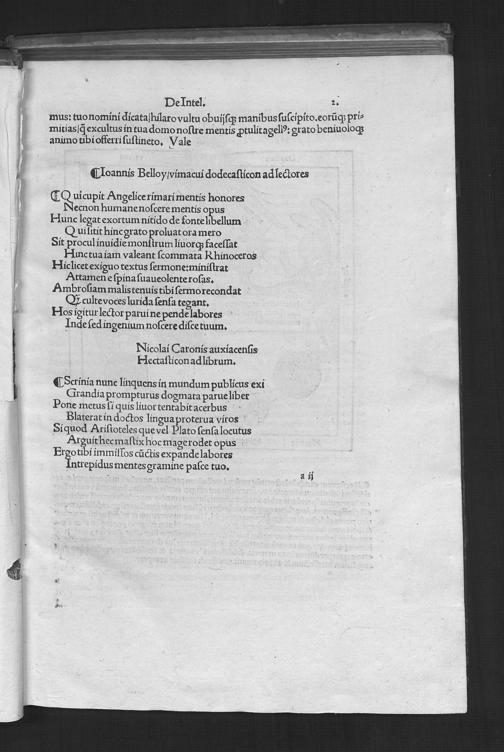 De Intel. 2.
mus: tuo nomini dicata/hilaro vultu obuijsqꝫ manibus suscipito. eorūqꝫ pri⸗
mitias/q̄ excultus in tua domo nostre mentis ꝓtulit agellꝰ: grato beniuoloqꝫ
animo tibi offerri sustineto. Vale
¶Ioannis Belloy/vimacui dodecasticon ad lectores
¶Qui cupit Angelice rimari mentis honores
Necnon humane noscere mentis opus
Hunc legat exortum nitido de fonte libellum
Qui sitit hinc grato proluat ora mero
Sit procul inuidie monstrum liuorqꝫ facessat
Hunc tua iam valeant scommata Rhinoceros
Hic licet exiguo textus sermone: ministrat
Attamen e spina suaueolente rosas.
Ambrosiam malis tenuis tibi sermo recondat
Qꝫ culte voces lurida sensa tegant.
Hos igitur lector parui ne pende labores
Inde sed ingenium noscere disce tuum.
Nicolai Caronis auxiacensis
Hectasticon ad librum.
¶Scrinia nunc linquens in mundum publicus exi
Grandia prompturus dogmata parue liber
Pone metus si quis liuor tentabit acerbus
Blaterat in doctos lingua proterua viros
Si quod Aristoteles que vel Plato sensa locutus
Arguit hec mastix hoc mage rodet opus
Ergo tibi immissos cūctis expande labores
Intrepidus mentes gramine pasce tuo.
a ij